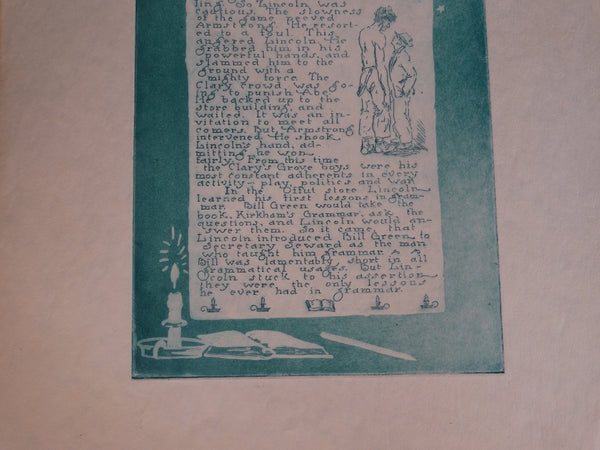 ling. So Lincoln was
cautious. The slowness
of the game peeved
Armstrong. He resort-
ed to a foul. This
angered Lincoln. He
grabbed him in his
powerful hands, and
slammed him to the
ground with a
mighty force. The
Clary crowd was go-
ing to punish Abe.
He backed up to the
store building, and
waited. It was an in-
vitation to meet all
comers. But Armstrong
intervened. He shook
Lincoln's hand, ad-
mitting he won
fairly. From this time
the Clary's Grove boys were his
most constant adherents in every
activity—play, politics and war.
In the Offut store Lincoln
learned his first lessons in gram-
mar. Bill Green would take the
book, Kirkham's Grammar, ask the
questions, and Lincoln would an-
swer them. So it came, that
Lincoln introduced Bill Green to
Secretary Seward as the man
who taught him grammar.
Bill was lamentably short in all
grammatical usages. But Lin-
coln stuck to his assertion
they were the only lessons
he ever had in grammar.